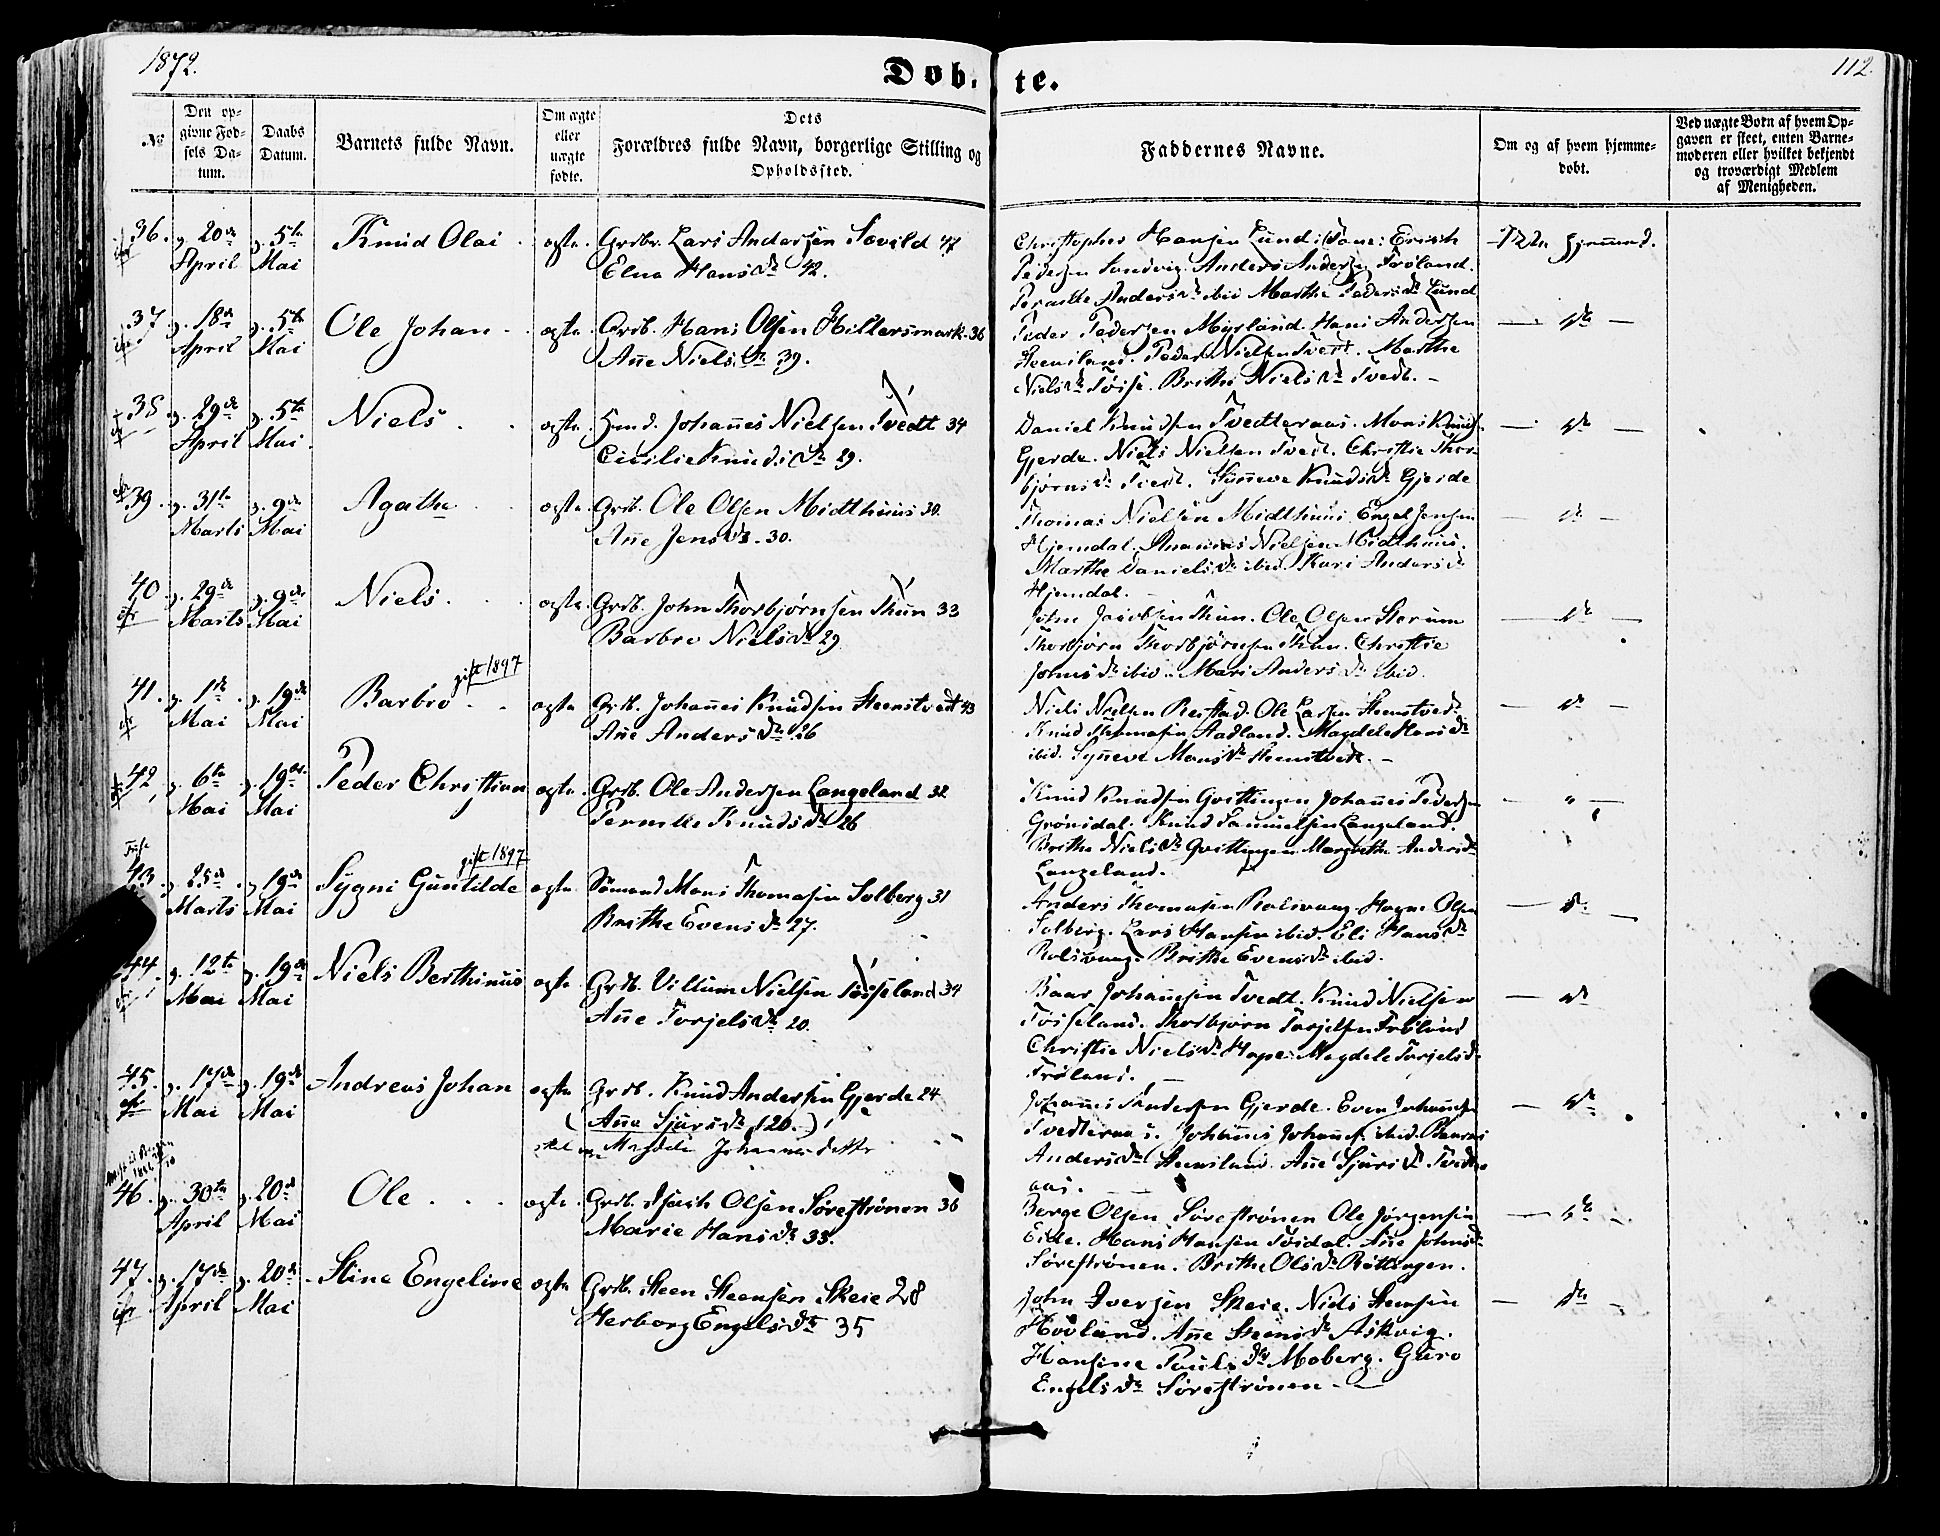 1872.
Døb-
te.
112.
No
Den op-
givne Fød-
sels Da-
tum.
Daabs
Datum.
Barnets fulde Navn.
Om ægte
eller
uægte
fødte.
Dets
Forældres fulde Navn, borgerlige Stilling og
Opholdssted.
Faddernes Navne.
Om og af hvem hjemme-
døbt.
Ved uægte Børn af hvem Op-
gaven er skeet, enten Barne-
moderen eller hvilket bekjendt
og troværdigt Medlem
af Menigheden.
36. d. 20de d. 5te Knud Olai. ægte. Grdbr. Lars Andersen 47
April Mai Elna Hansdr 42.
Christopher Hansen Lund
Pedersen Sandvig. Anders Andersen Frøland.
Andersdr ibid Marthe Pedersdr Lund
37 d. 18de d. 5te Ole Johan ægte. Grdb. Hans Olsen Hillersmark. 36
April Mai Ane Nielsdr 39.
Peder Pedersen Myrland. Hans Andersen
Peder Nielsen Tvedt. Marthe
Nielsdr Brithe Nielsdr Tvedt.
38 d. 29de d. 5te Niels ægte. Johanes Nielsen Tvedt 34
April Mai. Cicilie Knudsdr 29.
Daniel Knudsen Tvedteraas. Mons Knuds.
Gjerde. Niels Nielsen Tvedt. Christie Thor-
bjørnsdr Tvedt. Synneve Knudsdr Gjerde
39. d. 31te d. 9de Agathe ægte. Grdb. Ole Olsen Midthuus 30.
Marts Mai Ane Jensdr 30.
Thomas Nielsen Midthuus. Engel Jensen
Hjemdal. Nielsen Midthuus.
Marthe Danielsdr ibid. Kari Andersdr
Hjemdal.
40 d. 29de d. 9de Niels. ægte. Grdb. John Thorbjørnsen Thun 33
Marts Mai Barbro Nielsdr 29
John Jacobsen Thun. Ole Olsen
Thorbjørn Thorbjørnsen Thun. Christie
Johnsdr ibid. Mari Andersdr ibid.
gift 1897
41. d. 1ste d. 19de Barbro ægte Grdb. Johannes Knudsen Steenstvedt 43
Mai Mai Ane Andersdr 26
Niels Nielsen Ole Larsen Steenstvedt
Knud Thomasen Aadland. Magdele Hansdr
ibid. Synneve Monsdr Steenstvedt.
42 d. 6te d. 19de Peder Christian ægte. Grdb. Ole Andersen Langeland 32
Mai Mai Pernille Knudsdr 26
Knud Knudsen Gvittingen Johannes Pedersen
Grønsdal. Knud Samuelsen Langeland.
Brithe Nielsdr Gvittingen Margrethe Andersdr
Langeland.
gift 1897
43 d. 25de d. 19de Sygni Guntilde ægte Sømand Mons Thomasen Solberg 31
Marts Mai Brithe Evensdr 27.
Anders Thomasen Rolsvaag. Olsen
Solberg. Lars Hansen ibid. Eli Hansdr
Rolsvaag. Brithe Evensdr ibid.
44. d. 12te d. 19de Niels Berthinus ægte Grdb. Villum Nielsen Tøsseland 34
Mai Mai Ane Torjelsdr 20.
Baar Johannsen Tvedt. Knud Nielsen
Tøsseland. Thorbjørn Torjelsen Frøland
Christie Nielsdr Hope. Magdele Torjelsdr
Frøland.
45. d. 17de d. 19de Andreas Johan ægte Grdb. Knud Andersen Gjerde 24
Mai Mai (Anne Sjursdr 20.)
skal være Magdeli Johannesdatter
Johannes Andersen Gjerde. Even Johannsen
Tvedteraas. Johannes Johannes. ibid.
Andersdr Ane Sjursdr Tvedter-
aas.
46 d. 30te d. 20de Ole ægte. Grdb. Isach Olsen Sørestrønen 36
April Mai Marie Hansdr 33.
Berge Olsen Sørestrønen Ole Jørgensen
Eide. Hans Hansen Ane Johnsdr
Sørestrønen. Brithe Olsdr Røttingen.
47. d. 17de d. 20de Stine Engeline ægte Grdb. Steen Steensen Skeie 28
April Mai Herborg Engelsdr 35
John Iversen Skeie. Niels Steensen
Hovland. Ane Steensdr Askvig.
Hansine Paulsdr Moberg. Guro
Engelsdr Sørestrønen.